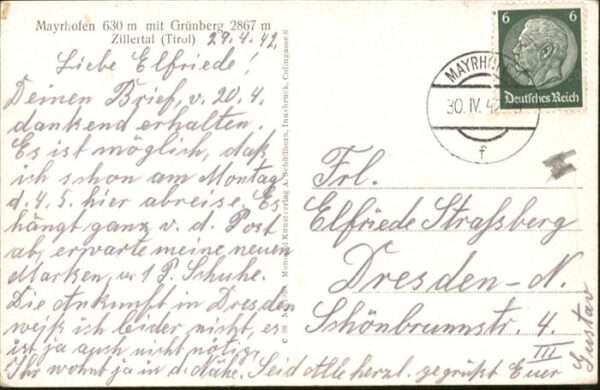 Mayrhofen 630 m mit Grünberg 2867 m
Zillertal (Tirol)
29.4.42.
Liebe Elfriede!
Deinen Brief, v. 20.4.
dankend erhalten.
Es ist möglich, daß
ich schon am Montag
d. 4.5. hier abreise. Es
hängt ganz v. d. Post
ab, erwarte meine neuen
Marken, u. 1 P. Schuhe.
Die Ankunft in Dresden
weiß ich leider nicht, es
ist ja auch nicht nötig,
Ihr wohnt ja in d. Nähe. Seid Alle herzl. gegrüßt Euer
Gustav
Kunstverlag A. Innsbruck, Colingasse 6
6 6
Deutsches Reich
MAYRHOFEN
30.IV.42
f
Frl.
Elfriede Straßberg
Dresden-N.
Schönbrunnstr. 4.
III